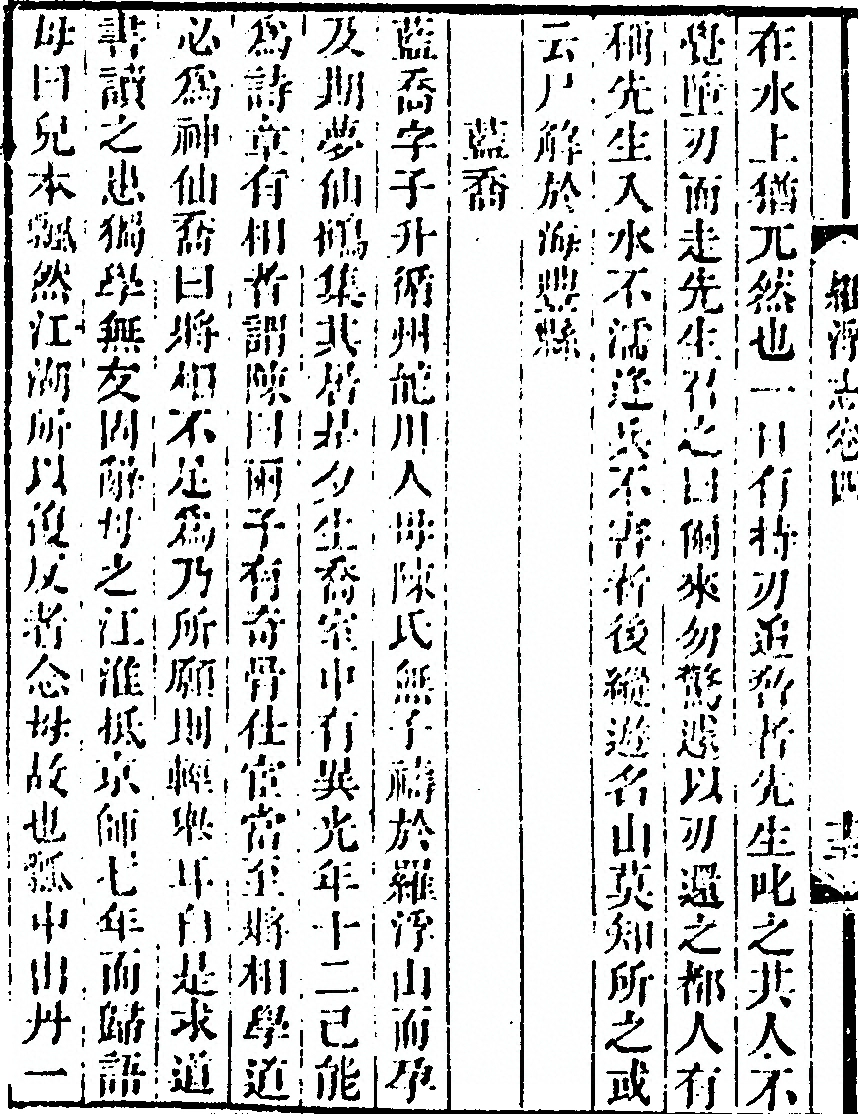 羅浮志卷四
在水上猶兀然也一日有持刃追啓者先生叱之其人不
覺墮刃而走先生召之曰俐來勿驚遂以刃還之都人有
稱先生入水不濡逢兵不害者後縱遊名山莫知所之或
云尸解於海豐縣
藍喬
藍喬字子升循州龍川人母陳氏無子禱於羅浮山而孕
及期夢仙鶴集其居是夕生喬室中有異光年十二已能
爲詩章有相者謂陳曰爾子有奇骨仕宦當至將相學道
必爲神仙喬曰將相不足爲乃所願則輕舉耳自是求道
書讀之患獨學無友因辭母之江淮抵京師七年而歸語
母曰兒本飄然江湖所以復反者念母故也瓢中出丹一